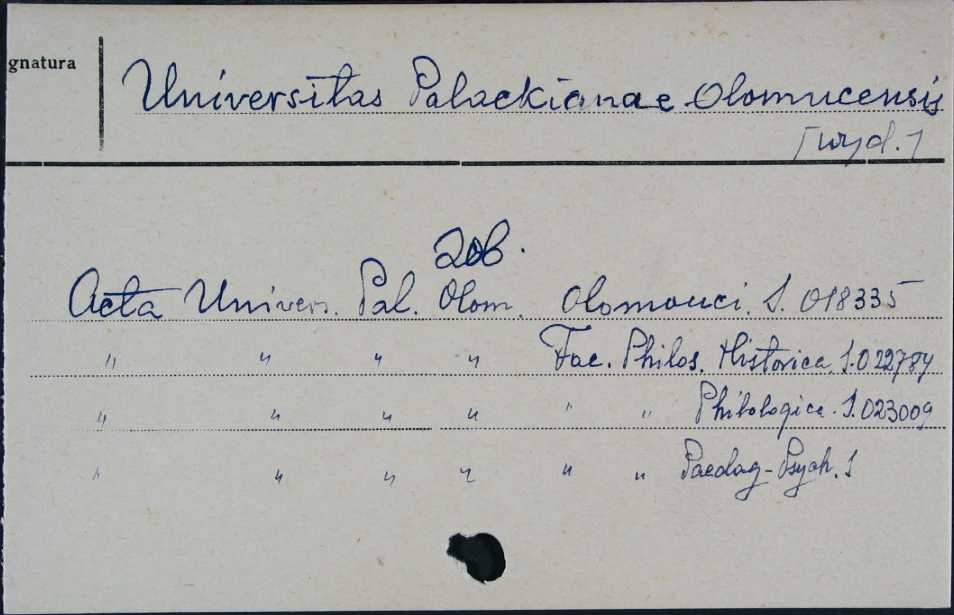 gnatura
Universitas Palackianae Olomucensis
[wyd.]
Zob.
Acta Univers. Pal. Olom. Olomouci. S. 018335
" " " " Fac. Philos. Historica. S. 022784
" " " " " " Philologica. S. 023009
" " " " " " Paedag-Psych. S